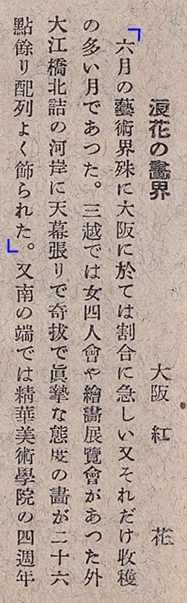 浪花の畫界
大阪 紅花
六月の藝術界殊に大阪に於ては割合に急しい又それだけ收穫
の多い月であつた。三越では女四人會や繪畫展覽會があつた外
大江橋北詰の河岸に天幕張りで奇拔で眞摯な態度の畫が二十六
點餘り配列よく飾られた。又南の端では精華美術學院の四週年